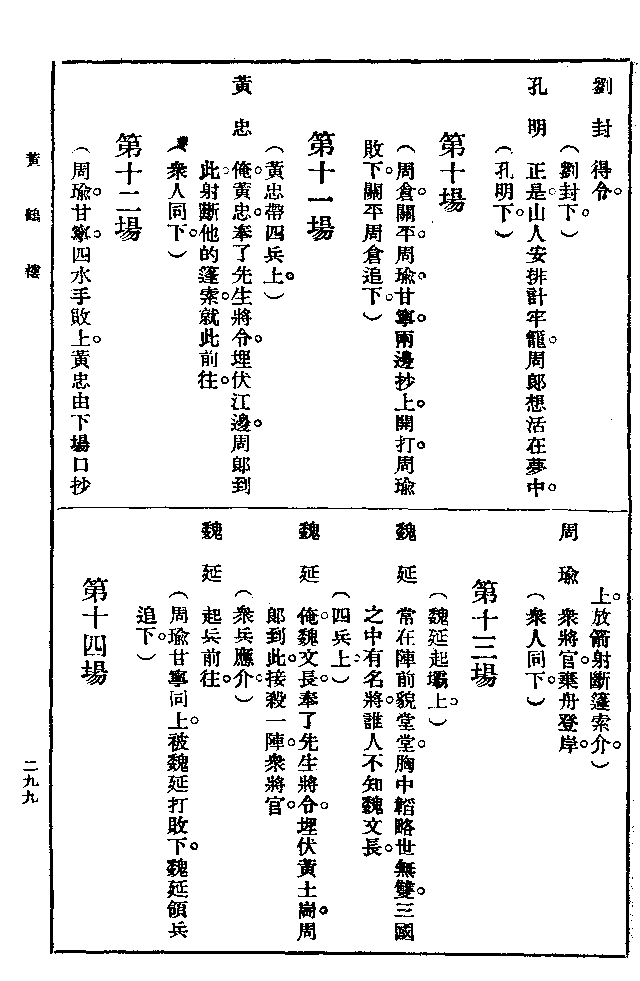 劉封 得令。
(劉封下。)
孔明 正是。山人安排計牢籠。周郎想活在夢中。
(孔明下。)
第十場
(周倉。關平。周瑜。甘寧。兩邊抄上。開打。周瑜
敗下。關平周倉追下。)
第十一場
(黃忠帶四兵上。)
黃忠 俺。黃忠。奉了先生將令。埋伏江邊。周郎到
此。射斷他的篷索。就此前往。
(衆人同下。)
第十二場
(周瑜。甘寧。四水手敗上。黃忠由下場口抄
上。放箭射斷篷索介。)
周瑜 衆將官。棄舟登岸。
(衆人同下。)
第十三場
(魏延起壩上。)
魏延 常在陣前貌堂堂。胸中韜略世無雙。三國
之中有名將。誰人不知魏文長。
(四兵上。)
魏延 俺。魏文長。奉了先生將令。埋伏黃土崗。周
郎到此。接殺一陣。衆將官。
(衆兵應介。)
魏延 起兵前往。
(周瑜甘寧同上。被魏延打敗下。魏延領兵
追下。)
第十四場
黃鶴樓
二九九